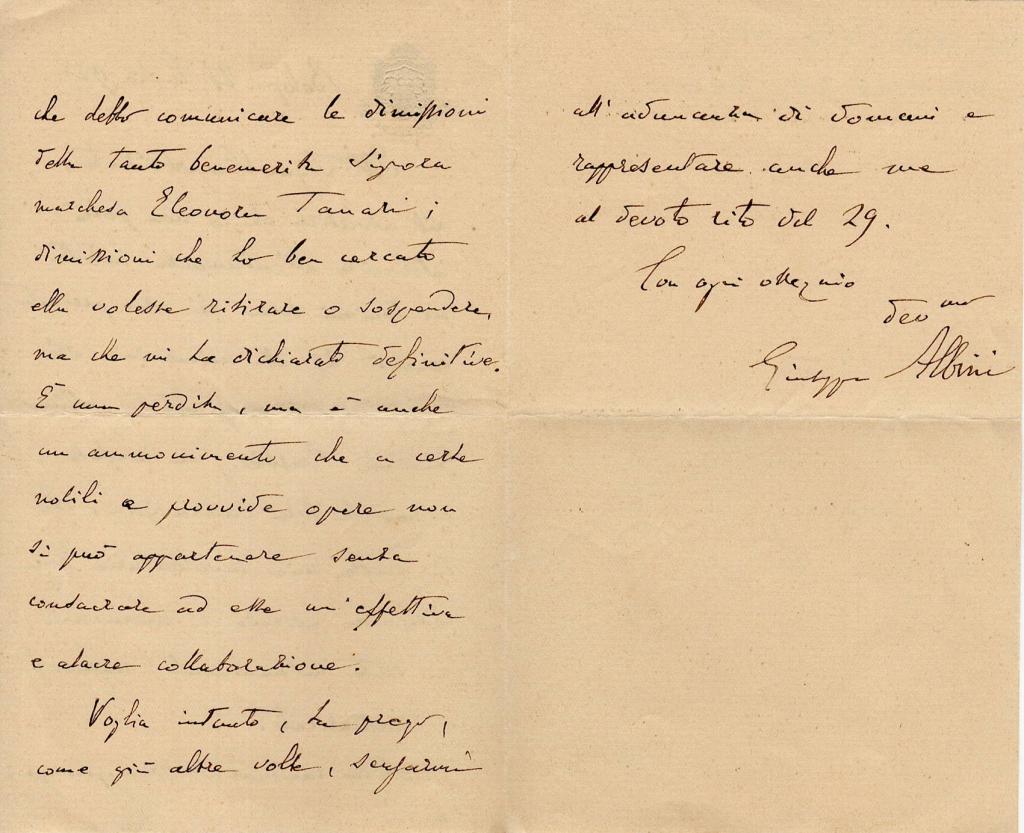 che debbo comunicare le dimissioni
della tanto benemerita Signora
marchesa Eleonora Tanari;
dimissioni che ho ben cercato
ella volesse ritirare o sospendere,
ma che mi ha dichiarato definitive.
È una perdita, ma è anche
un ammonimento che a certe
nobili e provvide opere non
si può appartenere senza
consacrare ad esse un'effettiva
e alacre collaborazione.
Voglia intanto, La prego,
come già altre volte, scusarmi
all'adunanza di domani e
rappresentare anche me
al devoto rito del 29.
Con ogni ossequio
dev.mo
Giuseppe Albini